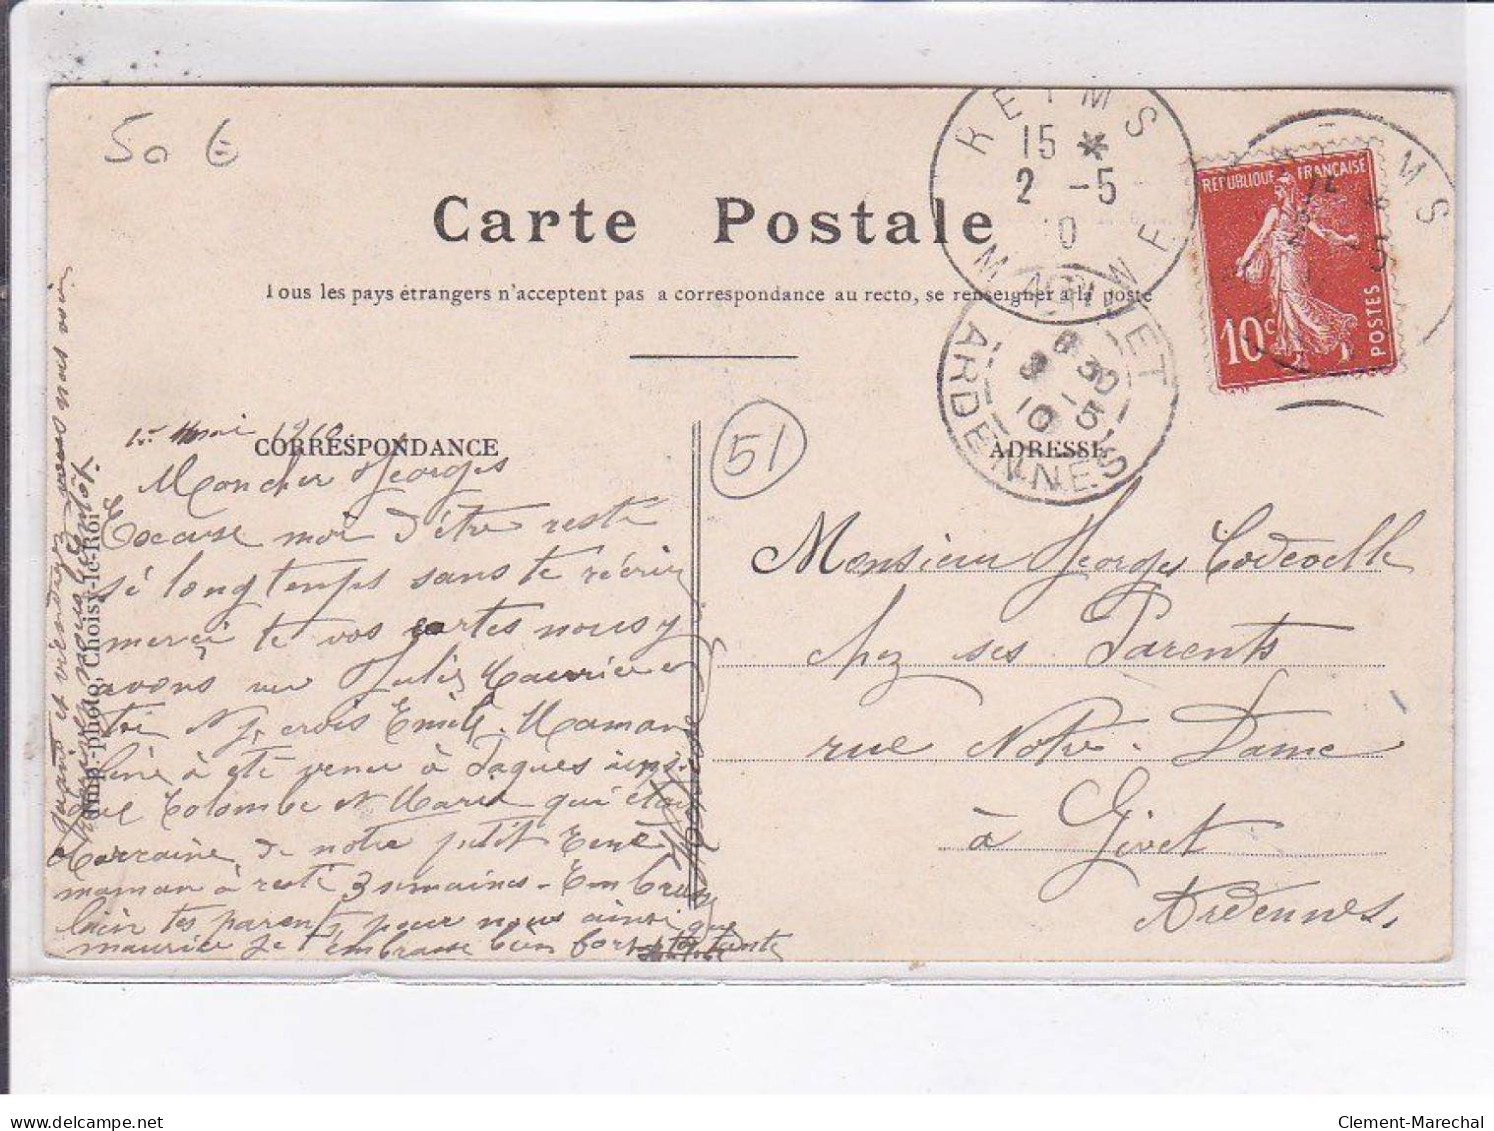 50 €
REIMS
15 *
2 -5
10
MARNE
REPUBLIQUE FRANÇAISE
10c
POSTES
MS
Carte Postale
Tous les pays étrangers n'acceptent pas a correspondance au recto, se renseigner à la poste
GIVET
6 30
3 -5
10
ARDENNES
51
CORRESPONDANCE
ADRESSE
1er mai 1910
Mon cher Georges
Excuse moi d'être resté
si longtemps sans te récrire
merci te vos cartes nous y
avons vu Jules Maurice et
toi et je crois Emile. Maman
à été venu à Jaques ainsi
que Colombe et Maria qui était
Marraine de notre petit René
maman à resté 3 semaines - Embrasse
bien tes parents pour nous ainsi que
maurice je t'embrasse bien fort ta tante
et viendrez vous nous voir
Imp.-photo, Choisy-le-Roi
Monsieur Georges
chez ses Parents
rue Notre-Dame
à Givet
Ardennes.
Clement-Marechal
delcampe.net